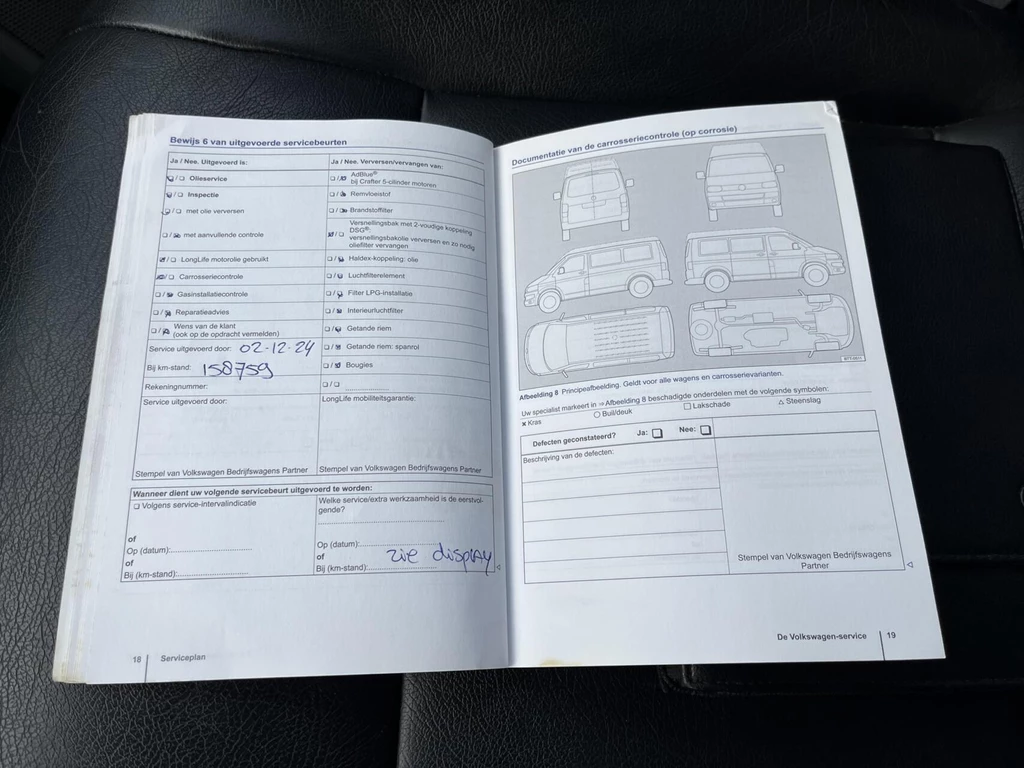 Bewijs 6 van uitgevoerde servicebeurten
Ja / Nee. Uitgevoerd is:
☐/☐ Olieservice
☐/☐ Inspectie
☐/☐ met olie verversen
☐/☐ met aanvullende controle
☐/☐ LongLife motorolie gebruikt
☐/☐ Carrosseriecontrole
☐/☐ Gasinstallatiecontrole
☐/☐ Reparatieadvies
☐/☐ Wens van de klant
(ook op de opdracht vermelden)
Service uitgevoerd door: 02-12-24
Bij km-stand: 158759
Rekeningnummer:
Service uitgevoerd door:
Stempel van Volkswagen Bedrijfswagens Partner
Ja / Nee. Verversen/vervangen van:
☐/☐ AdBlue®
bij Crafter 5-cilinder motoren
☐/☐ Remvloeistof
☐/☐ Brandstoffilter
☐/☐ Versnellingsbak met 2-voudige koppeling
DSG®:
versnellingsbakolie verversen en zo nodig
oliefilter vervangen
☐/☐ Haldex-koppeling: olie
☐/☐ Luchtfilterelement
☐/☐ Filter LPG-installatie
☐/☐ Interieurluchtfilter
☐/☐ Getande riem
☐/☐ Getande riem: spanrol
☐/☐ Bougies
☐/☐ ....................
LongLife mobiliteitsgarantie:
Stempel van Volkswagen Bedrijfswagens Partner
Wanneer dient uw volgende servicebeurt uitgevoerd te worden:
☐ Volgens service-intervalindicatie
of
Op (datum):....................
of
Bij (km-stand):....................
Welke service/extra werkzaamheid is de eerstvol-
gende?
....................
Op (datum):....................
of zie display
Bij (km-stand):....................
18 Serviceplan
Documentatie van de carrosseriecontrole (op corrosie)
Afbeelding 8 Principeafbeelding. Geldt voor alle wagens en carrosserievarianten.
Uw specialist markeert in ⇒ Afbeelding 8 beschadigde onderdelen met de volgende symbolen:
× Kras ○ Buil/deuk ☐ Lakschade △ Steenslag
Defecten geconstateerd? Ja: ☐ Nee: ☐
Beschrijving van de defecten:
Stempel van Volkswagen Bedrijfswagens
Partner
De Volkswagen-service 19